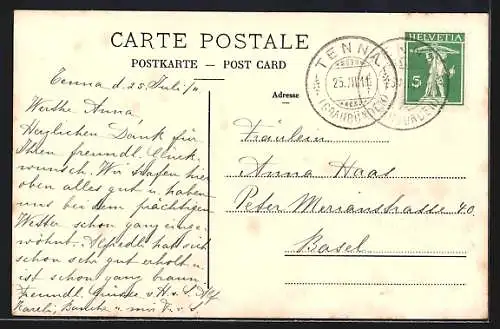 CARTE POSTALE
POSTKARTE – POST CARD
Tenna d. 25 Juli/11
Werthe Anna,
Herzlichen Dank für
Ihren freundl. Glück-
wunsch. Wir schlafen hier
oben alles gut u. haben
uns bei dem prächtigen
Wetter schon ganz einge-
wöhnt. hat sich
schon sehr gut erholt u
ist schon ganz braun
Freundl. Grüsse v
u. von
Adresse
TENNA
25.VII.11
(GRAUBÜNDEN)
HELVETIA
5
Fräulein
Anna Haas
Peter Merianstrasse 40.
Basel